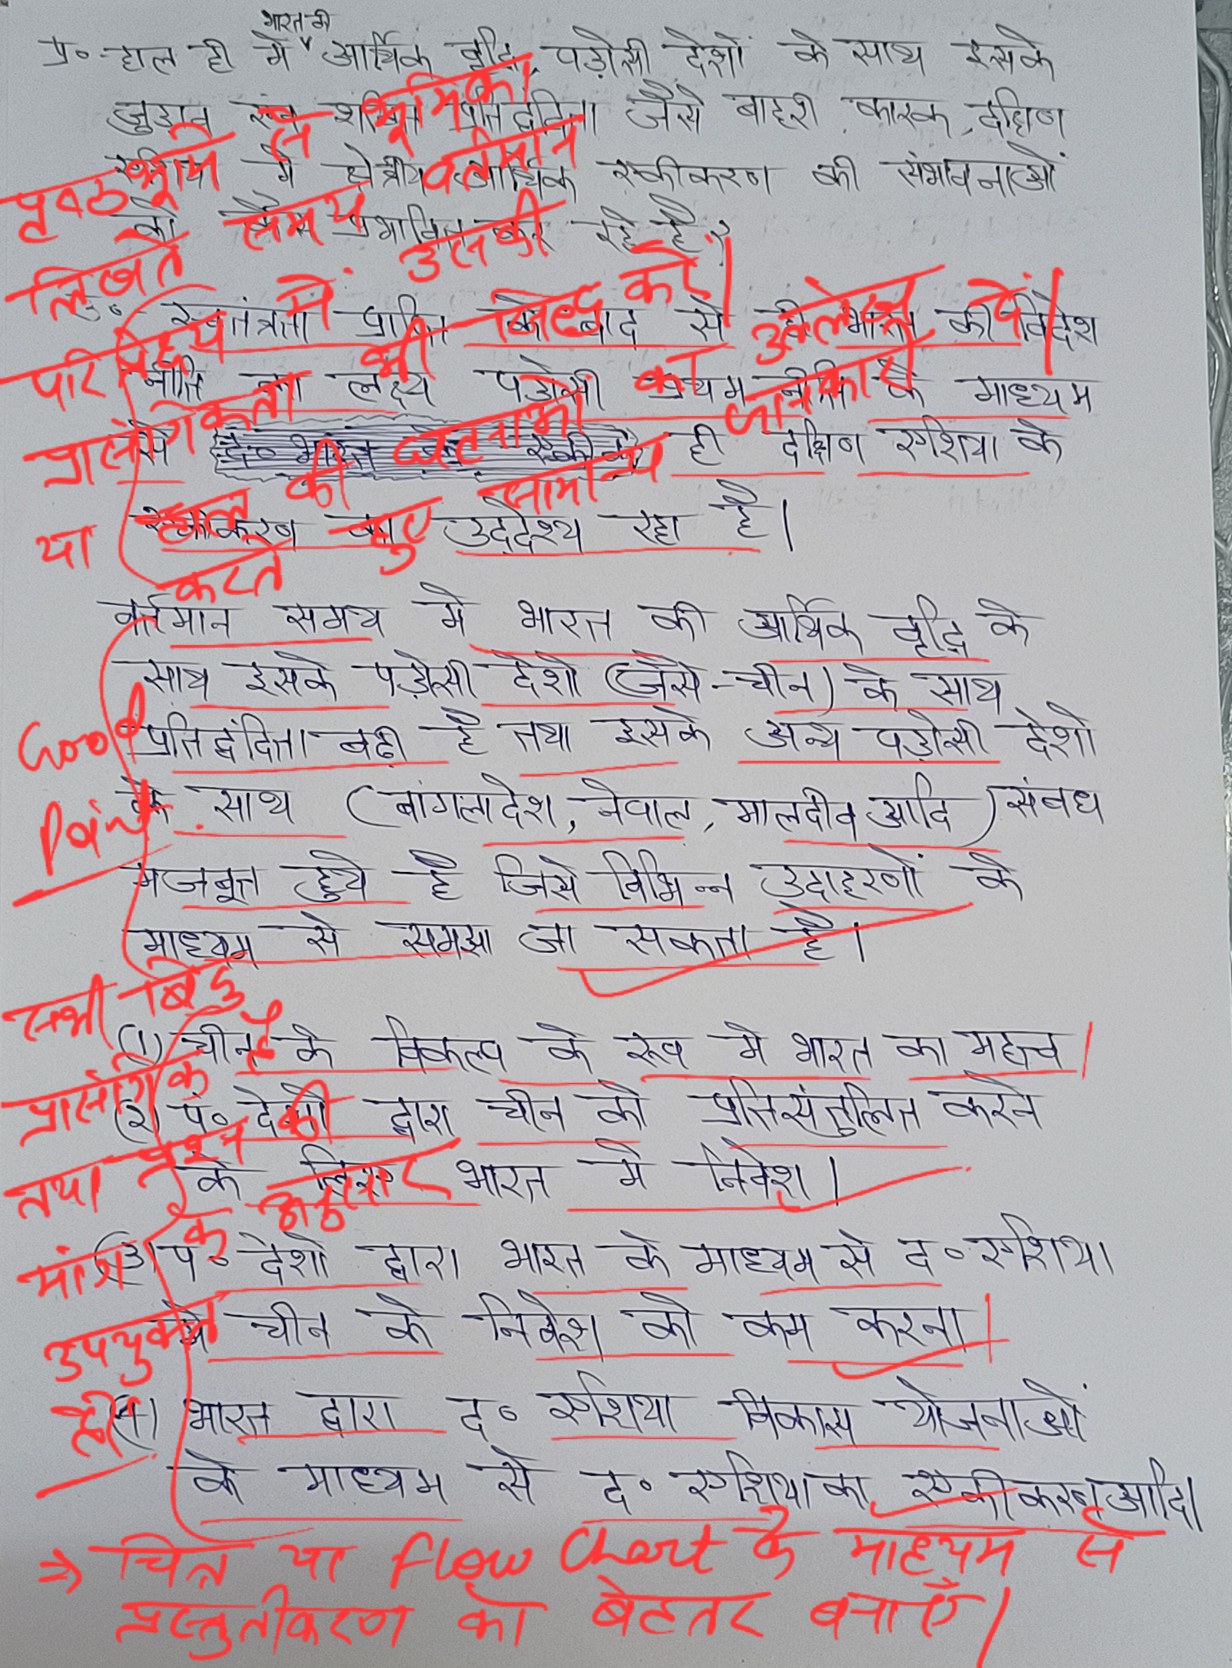 भारत की
प्र० हाल ही में आर्थिक वृद्धि, पड़ोसी देशों के साथ इसके
जुड़ाव एवं शक्ति प्रतिद्वंदिता जैसे बाहरी कारक, दक्षिण
एशिया में क्षेत्रीय आर्थिक एकीकरण की संभावनाओं
को कैसे प्रभावित कर रहे है?
पृष्ठभूमि से भूमिका
लिखते समय वर्तमान
परिदृश्य में उसकी
प्रासंगिकता भी सिद्ध करें।
या हाल की घटनाओं का उल्लेख
करते हुए सामान्य जानकारी दें।
उ० स्वतंत्रता प्राप्ति के बाद से ही भारत की विदेश
नीति का लक्ष्य पड़ोसी प्रथम नीति के माध्यम
से ही दक्षिण एशिया के
एकीकरण का उद्देश्य रहा है।
वर्तमान समय मे भारत की आर्थिक वृद्धि के
साथ इसके पड़ोसी देशो (जैसे-चीन) के साथ
प्रतिद्वंदिता बढ़ी है तथा इसके अन्य पड़ोसी देशो
के साथ (बांग्लादेश, नेपाल, मालदीव आदि) संबध
मजबूत हुये है जिसे विभिन्न उदाहरणों के
माध्यम से समझा जा सकता है।
Good
Point
(1) चीन के विकल्प के रूप मे भारत का महत्व।
(2) प० देशो द्वारा चीन को प्रतिसंतुलित करने
के लिए भारत मे निवेश।
(3) प० देशो द्वारा भारत के माध्यम से द० एशिया
मे चीन के निवेश को कम करना।
(4) भारत द्वारा द० एशिया विकास योजनाओं
के माध्यम से द० एशिया का एकीकरण आदि।
सभी बिंदु
प्रासंगिक है
तथा प्रश्न की
मांग के अनुसार
उपयुक्त
है।
⇒ चित्र या flow chart के माध्यम से
प्रस्तुतीकरण को बेहतर बनाएँ।